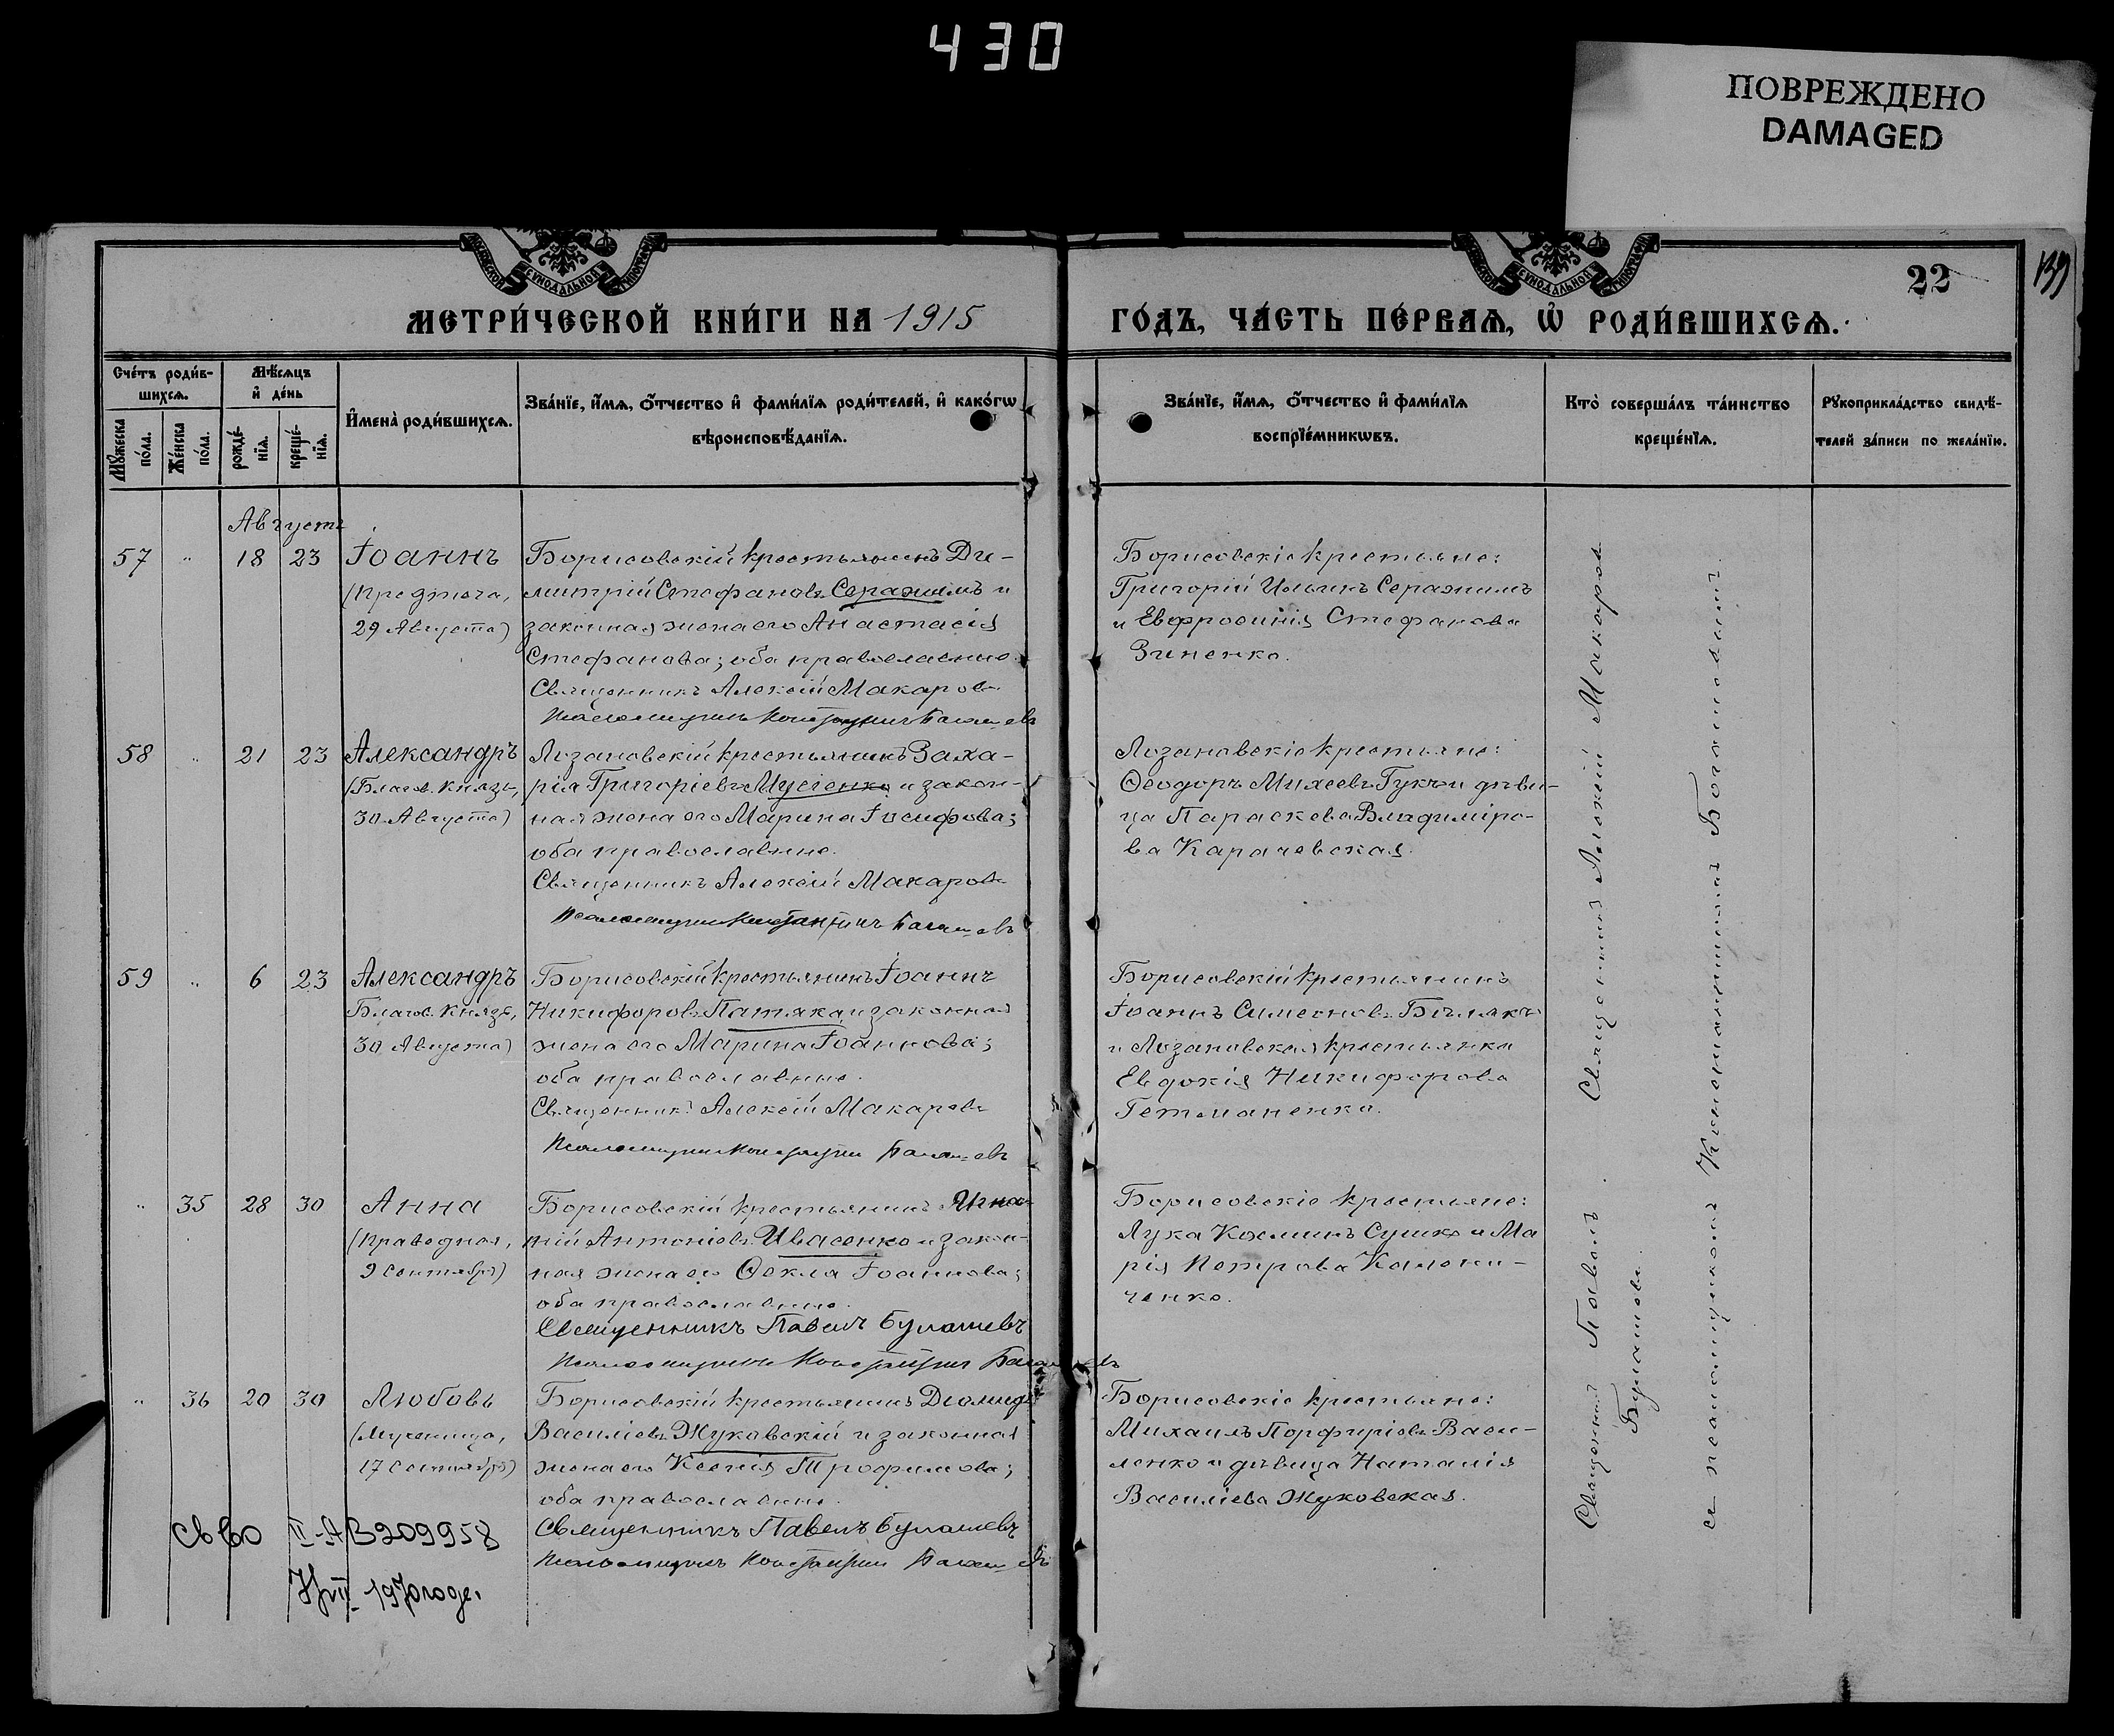 430
ПОВРЕЖДЕНО
DAMAGED
22
139
МЕТРИ́ЧЕСКОЙ КНИ́ГИ НА 1915
ГО́ДЪ, ЧА́СТЬ ПЕ́РВАѦ, Ѡ҆ РОДИ́ВШИХСѦ.
Сче́тъ роди́в-
шихсѧ.
Мѣ́сѧцъ
и҆ де́нь
Мꙋ́жеска по́ла.
Же́нска по́ла.
рожде́-
нїѧ.
креще́-
нїѧ.
И҆мена̀ роди́вшихсѧ.
Зва́нїе, и҆́мѧ, ѻ҆́тчество и҆ фами́лїѧ роди́телей, и҆ како́гѡ
вѣроисповѣ́данїѧ.
Зва́нїе, и҆́мѧ, ѻ҆́тчество и҆ фами́лїѧ
воспрїе́мникѡвъ.
Кто̀ соверша́лъ та́инство
креще́нїѧ.
Рꙋкоприкла́дство свидѣ́-
телей за́писи по жела́нїю.
Августъ
57 " 18 23 Іоаннъ
(Предтеча,
29 Августа)
Борисовскій крестьянинъ Ди-
митрій Стефановъ Серажимъ и
законная жена его Анастасія
Стефанова; оба православные.
Священникъ Алексій Макаровъ
Псаломщикъ Константинъ
Борисовскіе крестьяне:
Григорій Ильинъ Серажимъ
и Евфросинія Стефанова
Зиненко.
58 " 21 23 Александръ
(Благов. Князь,
30 Августа)
Лозановскій крестьянинъ Заха-
рія Григоріевъ Мусіенко и закон-
ная жена его Марина Іосифова;
оба православные.
Священникъ Алексій Макаровъ
Псаломщикъ Константинъ
Лозановскіе крестьяне:
Ѳеодоръ Михеевъ Гукъ и дѣви-
ца Параскева Владиміро-
ва Карачевская.
59 " 6 23 Александръ
Благов. Князь,
30 Августа)
Борисовскій крестьянинъ Іоаннъ
Никифоровъ Патяка и законная
жена его Марина Іоаннова;
оба православные.
Священникъ Алексій Макаровъ
Псаломщикъ Константинъ
Борисовскій крестьянинъ
Іоаннъ Симеоновъ Бѣлякъ
и Лозановская крестьянка
Евдокія Никифорова
Гетманенко.
" 35 28 30 Анна
(Праведная,
9 Сентября)
Борисовскій крестьянинъ
Антоніевъ Ивасенко и закон-
ная жена его Ѳекла Іоаннова;
оба православные.
Священникъ Павелъ Булашевъ
Псаломщикъ Константинъ
Борисовскіе крестьяне:
Лука Козминъ Сушко и Ма
рія Петрова Калени-
ченко.
" 36 20 30 Любовь
(Мученица,
17 Сентября)
Борисовскій крестьянинъ Діомидъ
Василіевъ Жуковскій и законная
жена его Ксенія Трофимова;
оба православные.
Священникъ Павелъ Булашевъ
Псаломщикъ Константинъ
Борисовскіе крестьяне:
Михаилъ Порфиріевъ Васи-
ленко и дѣвица Наталія
Василіева Жуковская.
Священникъ Алексій Макаровъ
Священникъ Павелъ
Булашевъ
съ псаломщикомъ Константиномъ
Св во II-АВ 209958
1970 года